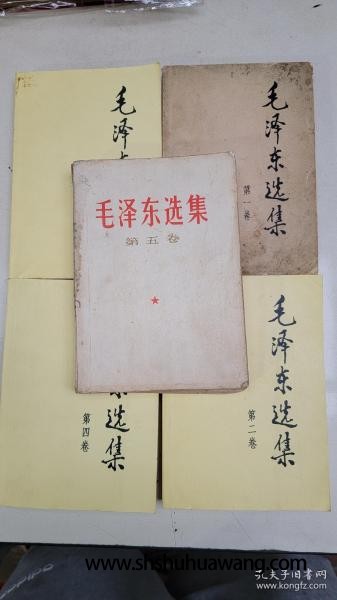 毛泽东
毛泽东选集
第一卷
毛泽东选集
第五卷
东选集
第四卷
毛泽东选集
第二卷
www.shshuhuawang.com
孔夫子旧书网